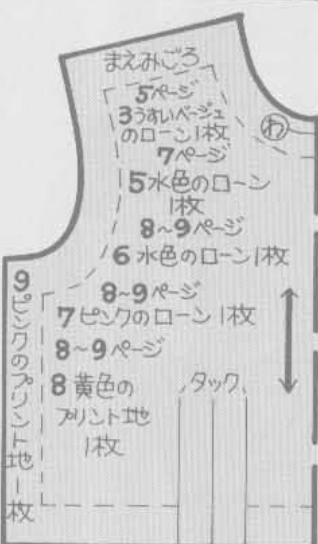 まえみごろ
5ページ
3うすいベージュ
のローン1枚
わ
7ページ
5水色のローン
1枚
8～9ページ
6水色のローン1枚
8～9ページ
7ピンクのローン1枚
8～9ページ
8黄色の
プリント地
1枚
タック
9ピンクのプリント地1枚